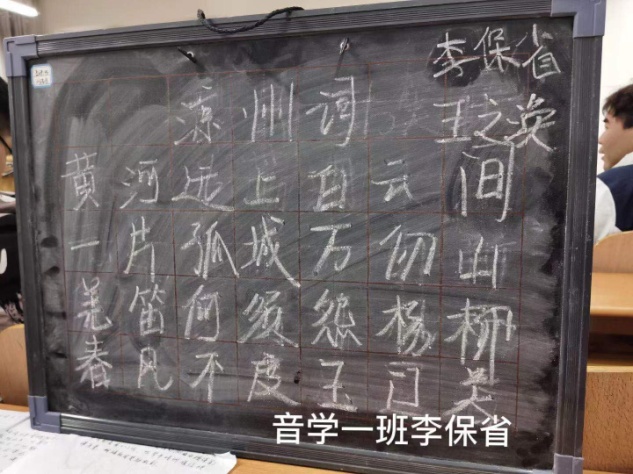 李保省
凉州词 王之涣
黄河远上白云间
一片孤城万仞山
羌笛何须怨杨柳
春风不度玉门关
音学一班李保省